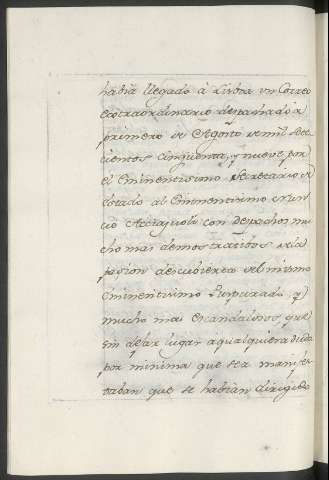 havia llegado à Lisboa un Correo
extraordinario despachado à
primero de Agosto de mil Sete-
cientos cinquenta, y nueve por
el Eminentissimo Secretario de
Estado al Eminentissimo Nun-
cio Acciajuoli con despachos mu-
cho mas demostrativos de la
pasion descubierta del mismo
Eminentissimo Purpurado, y
mucho mas escandalosos, que
sin dejar lugar a qualquiera duda
por minima que sea manifes-
taban que se habian dirigido